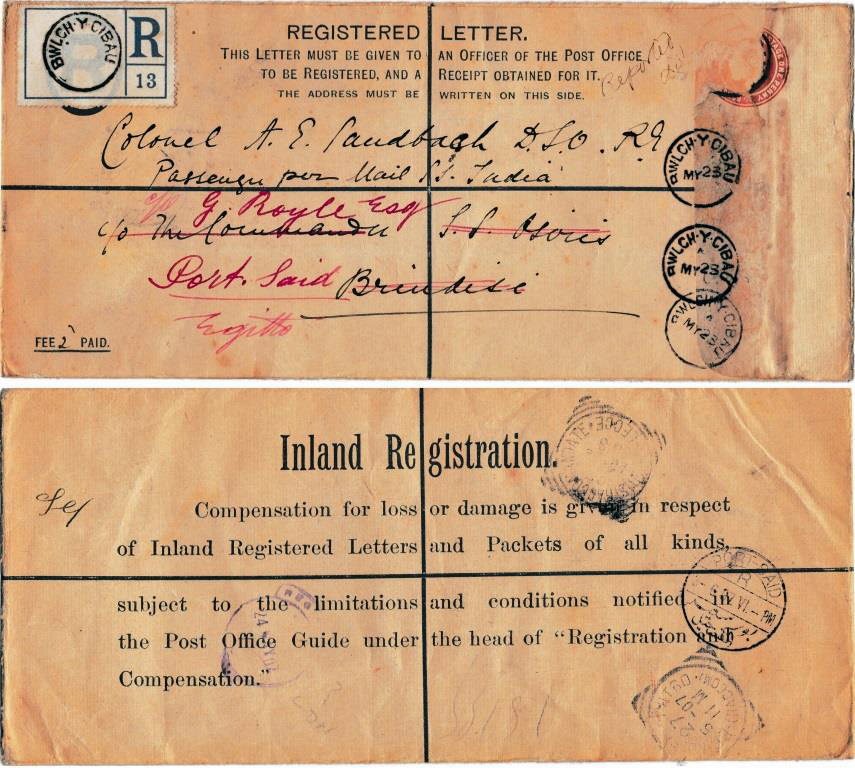 BWLCH·Y·CIBAU
R
13
REGISTERED LETTER.
THIS LETTER MUST BE GIVEN TO AN OFFICER OF THE POST OFFICE
TO BE REGISTERED, AND A RECEIPT OBTAINED FOR IT.
THE ADDRESS MUST BE WRITTEN ON THIS SIDE.
Colonel A. E. Sandbach D.S.O. R.E
Passenger per Mail S.S. India
c/o G. Royle Esq
c/o The Commander S.S. Osiris
Port. Said Brindisi
Egitto
FEE 2 PAID.
BWLCH·Y·CIBAU
MY 23
BWLCH·Y·CIBAU
MY 23
BWLCH·Y·CIBAU
MY 23
Inland Registration.
Compensation for loss or damage is given in respect
of Inland Registered Letters and Packets of all kinds,
subject to the limitations and conditions notified in
the Post Office Guide under the head of "Registration and
Compensation."
PORT-SAID
R
VI - PM
5-07
11 M